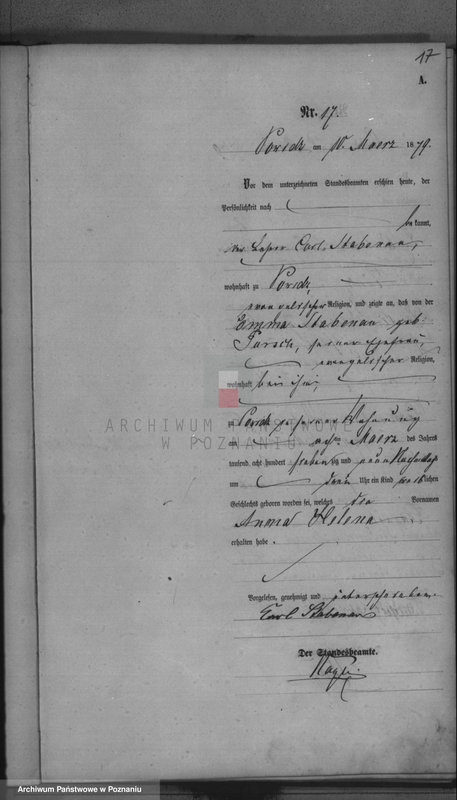 17
A.
Nr. 17.
am 10. Maerz 1879.
Vor dem unterzeichneten Standesbeamten erschien heute, der
Persönlichkeit nach
bekannt,
der Lehrer Carl Stabenau,
wohnhaft zu
evangelischer Religion, und zeigte an, daß von der
Emma Stabenau geb.
seiner Ehefrau,
evangelischer Religion,
wohnhaft bei ihm,
zu in seiner Wohnung
am Maerz des Jahres
tausend acht hundert siebenzig und neun Nachmittags
um Uhr ein Kind weiblichen
Geschlechts geboren worden sei, welches Vornamen
Anna Helena
erhalten habe.
Vorgelesen, genehmigt und unterschrieben.
Carl Stabenau
Der Standesbeamte.
ARCHIWUM PAŃSTWOWE
W POZNANIU
Archiwum Państwowe w Poznaniu